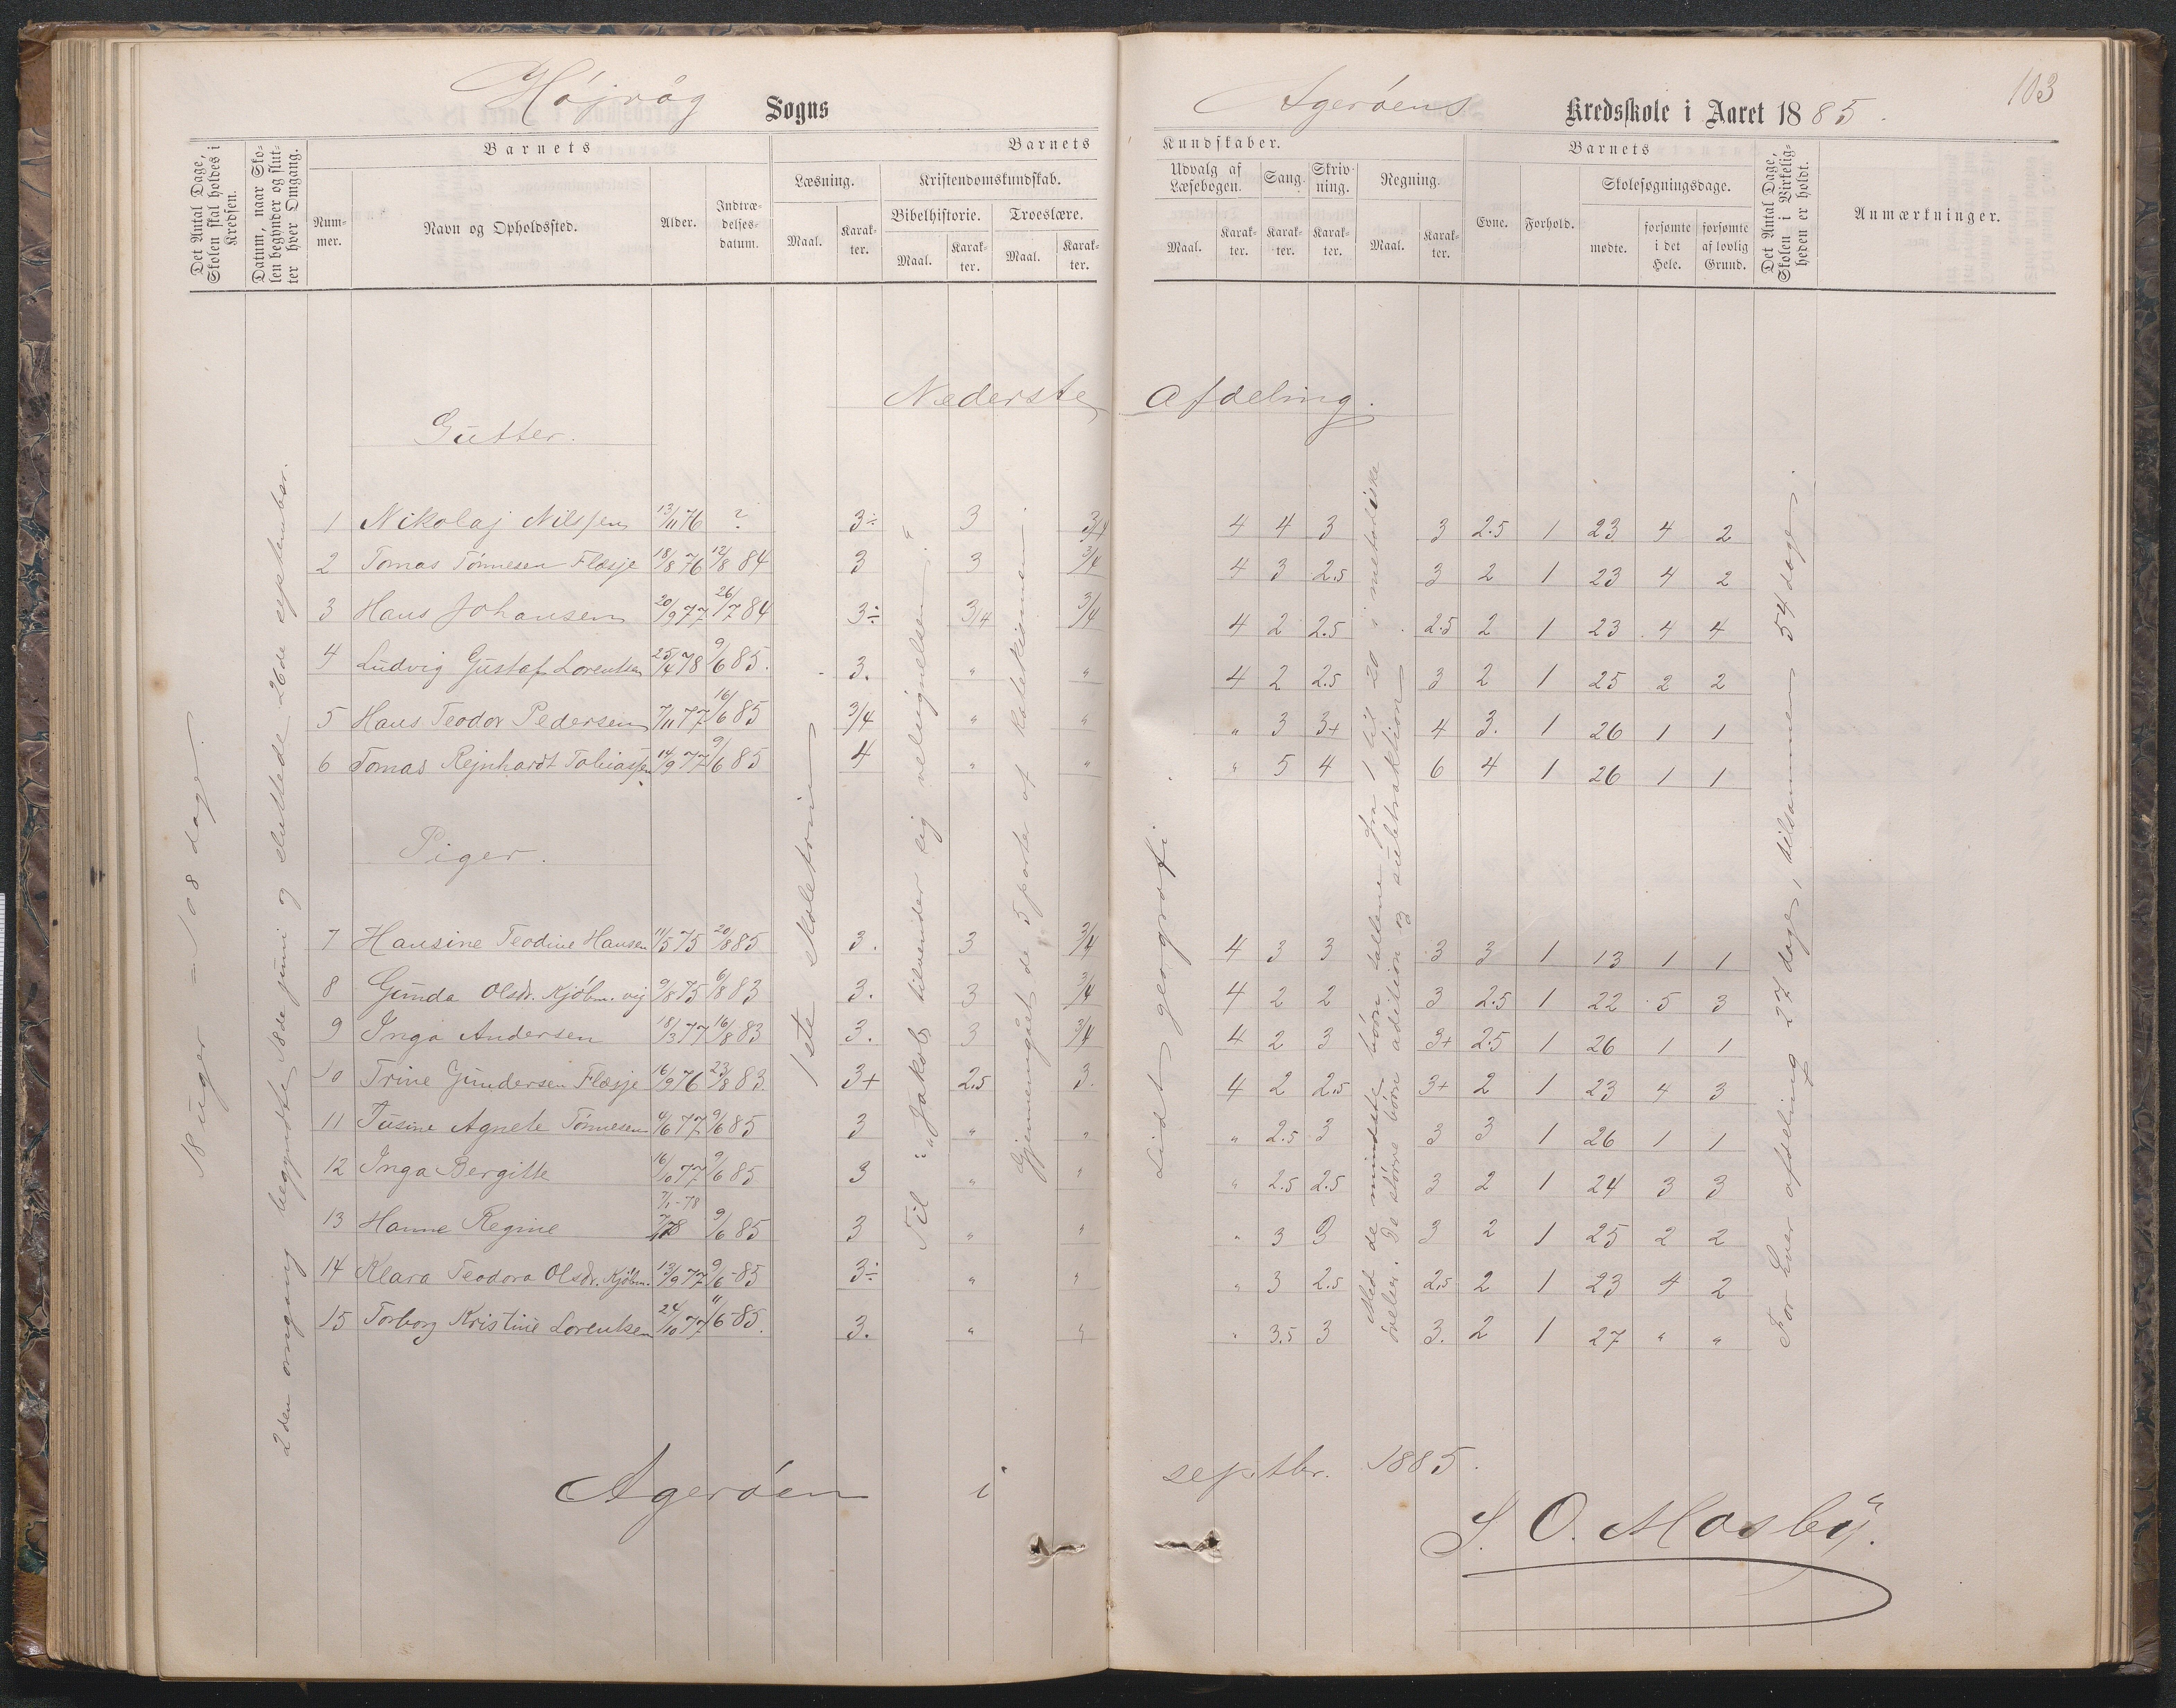 Højvåg Sogns Agerøens Kredsskole i Aaret 1885.
103
Det Antal Dage, Skolen skal holdes i Kredsen.
Datum, naar Skolen begynder og slutter hver Omgang.
Barnets
Nummer.
Navn og Opholdssted.
Alder.
Indtrædelsesdatum.
Barnets Kundskaber.
Læsning.
Maal.
Karakter.
Kristendomskundskab.
Bibelhistorie.
Maal.
Karakter.
Troeslære.
Maal.
Karakter.
Udvalg af Læsebogen.
Maal.
Karakter.
Sang.
Karakter.
Skrivning.
Karakter.
Regning.
Maal.
Karakter.
Barnets
Evne.
Forhold.
Skolesøgningsdage.
mødte.
forsømte i det Hele.
forsømte af lovlig Grund.
Det Antal Dage, Skolen i Virkeligheden er holdt.
Anmærkninger.
Nederste Afdeling.
18 uger = 108 dage.
2den omgang begyndte 18de juni og sluttede 26de september.
1ste skoletrin
Til „Jakob tilvender sig velsignelsen."
Gjennemgået de 5 parter af katekismen.
Lidt geografi
Med de mindste børn tallene fra 1 til 20 i metodiske
øvelser. De større børn addition og subtraktion
For hver afdeling 27 dage, tilsammen 54 dage.
Gutter.
1 Nikolaj Nilssen 13/11 76 ? 3÷ 3 3/4 4 4 3 3 2.5 1 23 4 2
2 Tomas Tønnesen Flæsje 18/8 76 12/8 84 3 3 3/4 4 3 2.5 3 2 1 23 4 2
3 Hans Johansen 20/9 77 26/7 84 3÷ 3/4 3/4 4 2 2.5 2.5 2 1 23 4 4
4 Ludvig Gustaf Lorentsen 25/4 78 9/6 85. 3. " " 4 2 2.5 3 2 1 25 2 2
5 Hans Teodor Pedersen 7/11 77 16/6 85 3/4 " " " 3 3+ 4 3. 1 26 1 1
6 Tomas Rejnhardt Tobiassen 14/9 77 9/6 85 4 " " " 5 4 6 4 1 26 1 1
Piger.
7 Hansine Teodine Hansen 11/5 75 20/8 85 3. 3 3/4 4 3 3 3 3 1 13 1 1
8 Gunda Olsdr. Kjøbm.vig 9/8 75 6/8 83 3. 3 3/4 4 2 2 3 2.5 1 22 5 3
9 Inga Andersen 18/3 77 16/8 83 3. 3 3/4 4 2 3 3+ 2.5 1 26 1 1
10 Trine Gundersen Flæsje 16/9 76 23/8 83. 3+ 2.5 3. 4 2 2.5 3+ 2 1 23 4 3
11 Tusine Agnete Tønnesen 4/6 77 9/6 85 3 " " " 2.5 3 3 3 1 26 1 1
12 Inga Bergitte 16/10 77 9/6 85 3 " " " 2.5 2.5 3 2 1 24 3 3
7/1-78
13 Hanne Regine 9/6 85 3 " " " 3 3 3 2 1 25 2 2
14 Klara Teodora Olsdr. Kjøbm. 13/9 77 9/6-85 3÷ " " " 3 2.5 2.5 2 1 23 4 2
15 Torborg Kristine Lorentsen 24/10 77 11/6-85. 3. " " " 3.5 3 3. 2 1 27 " "
Agerøen i septbr. 1885.
S. O. Mosby.